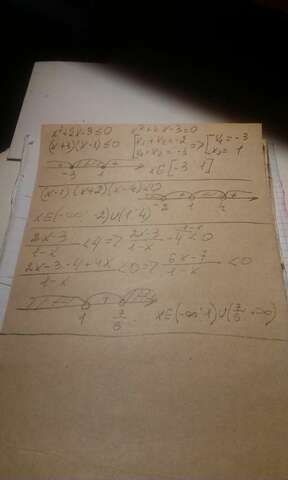 x²+2x-3≤0 x²+2x-3=0
(x+3)(x-1)≤0 [x₁+x₂=-2 => [x₁=-3
x₁·x₂=-3 x₂=1
-3 1 x∈[-3 1]
(x-1)(x+2)(x-4)<0
-2 1 4
x∈(-∞ -2)∪(1 4)
2x-3/1-x <4 => 2x-3/1-x -4 <0
2x-3-4+4x/1-x <0 => 6x-7/1-x <0
1 7/6 x∈(-∞ 1)∪(7/6 +∞)